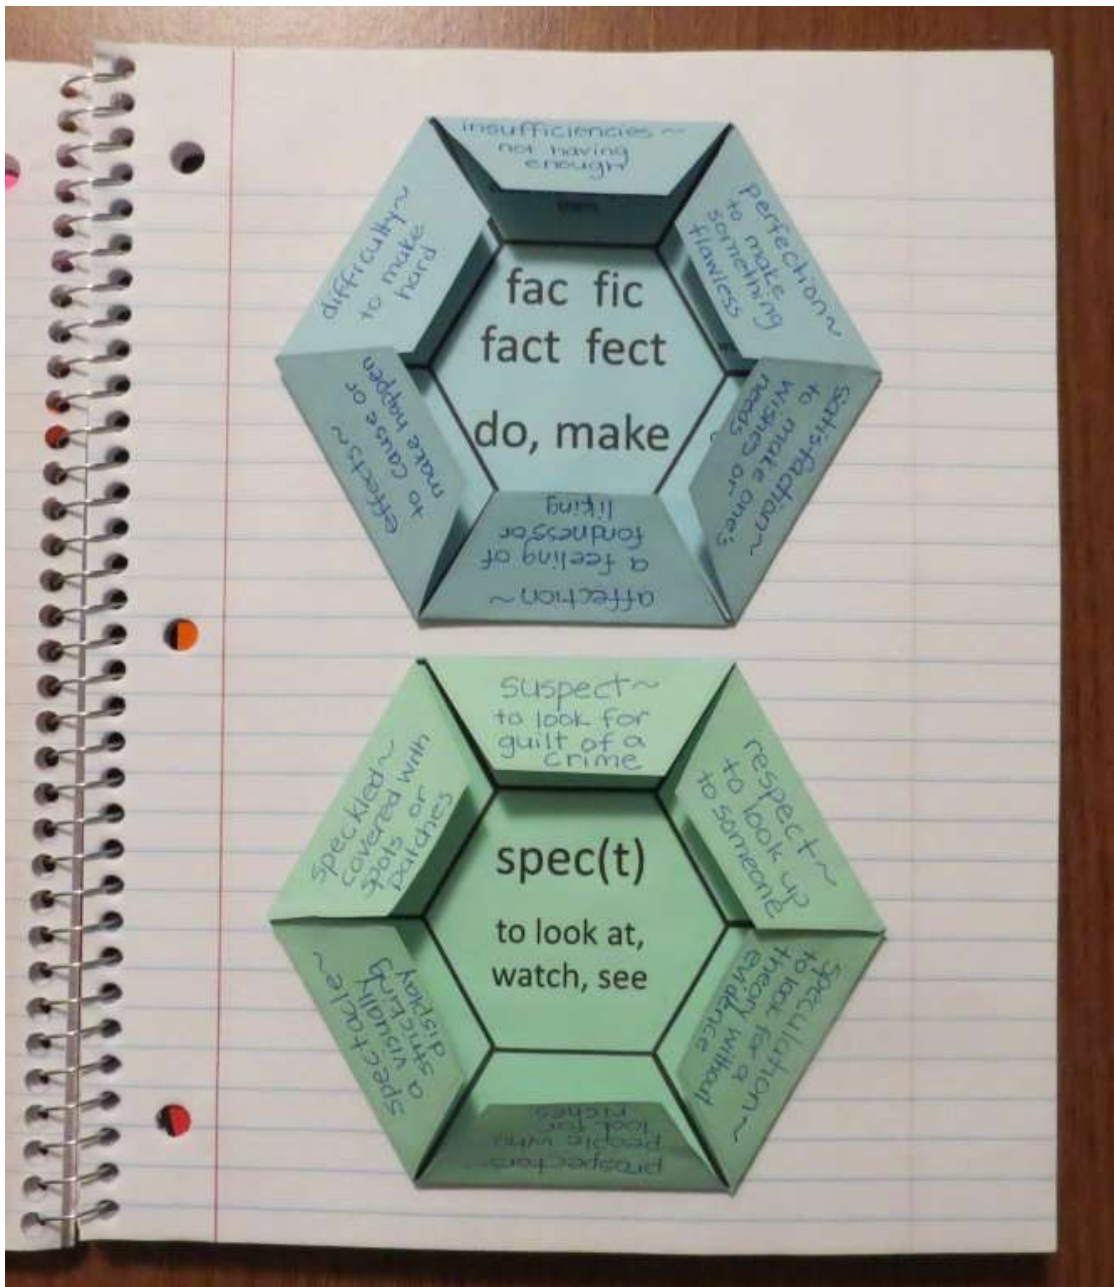 insufficiencies ~
not having
enough
perfection ~
to make
something
flawless
satisfaction ~
to make one's
wishes or
needs
affection ~
a feeling of
fondness or
liking
effects ~
to cause or
make happen
difficulty ~
to make
hard
fac fic
fact fect
do, make
suspect ~
to look for
guilt of a
crime
respect ~
to look up
to someone
speculation ~
to look for a
theory without
evidence
prospectors
people who
look for
riches
spectacle ~
a visually
striking
display
speckled ~
covered with
spots or
patches
spec(t)
to look at,
watch, see